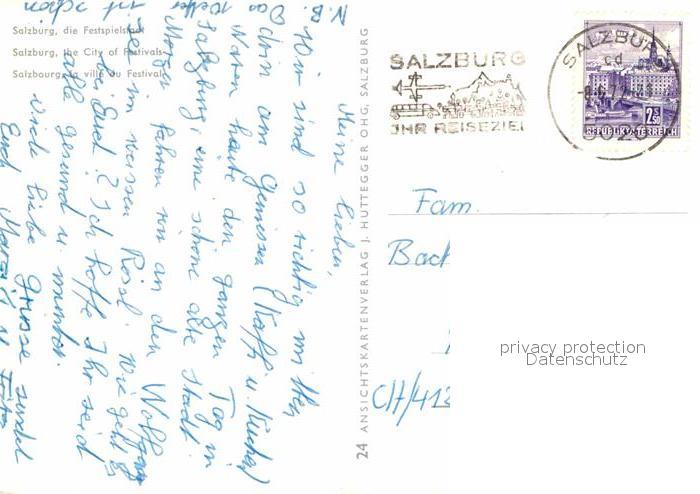 Salzburg, die Festspielstadt
Salzburg, the City of Festivals
Salzbourg, la ville du Festival
N.B.
Das Wetter
ist schön
Meine Lieben,
Wir sind so richtig mitten
drin am Geniessen (Kaffe u. Kuchen)
Waren heute den ganzen Tag in
Salzburg, eine schöne alte Stadt.
Morgen fahren wir an den Wolfgang
see im weissen Rössl. Wie geht es
bei Euch? Ich hoffe Ihr seid
alle gesund u. munter.
Viele liebe Grüsse sendet
Euch
24 ANSICHTSKARTENVERLAG J. HUTTEGGER OHG, SALZBURG
SALZBURG
IHR REISEZIEL
SALZBURG
cd
5020
2.50
REPUBLIK ÖSTERREICH
Fam.
Bach
CH/413
privacy protection
Datenschutz